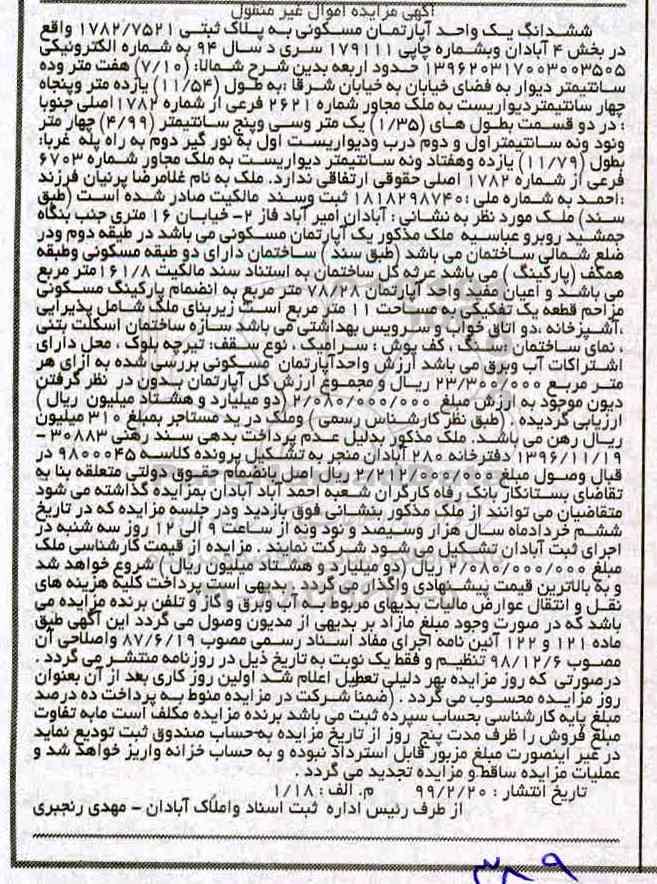 آگهی مزایده اموال غیر منقول
ششدانگ یک واحد آپارتمان مسکونی به پلاک ثبتی ۱۷۸۲/۷۵۲۱ واقع
در بخش ۴ آبادان وبشماره چاپی ۱۷۹۱۱۱ سری د سال ۹۴ به شماره الکترونیکی
۱۳۹۶۲۰۳۱۷۰۰۳۰۰۳۵۰۵ حدود اربعه بدین شرح شمالا: (۷/۱۰) هفت متر وده
سانتیمتر دیوار به فضای خیابان به خیابان شرقا :به طول (۱۱/۵۴) یازده متر وپنجاه
چهار سانتیمتر دیواریست به ملک مجاور شماره ۲۶۲۱ فرعی از شماره ۱۷۸۲اصلی جنوبا
: در دو قسمت بطول های (۱/۳۵) یک متر وسی وپنج سانتیمتر (۴/۹۹) چهار متر
ونود ونه سانتیمتراول و دوم درب ودیواریست اول به نور گیر دوم به راه پله غربا:
بطول (۱۱/۷۹) یازده وهفتاد ونه سانتیمتر دیواریست به ملک مجاور شماره ۶۷۰۳
فرعی از شماره ۱۷۸۲ اصلی حقوقی ارتفاقی ندارد. ملک به نام غلامرضا پرنیان فرزند
:احمد به شماره ملی :۱۸۱۸۲۹۸۷۴۰ ثبت وسند مالکیت صادر شده است (طبق
سند) ملک مورد نظر به نشانی : آبادان امیر آباد فاز ۲- خیابان ۱۶ متری جنب بنگاه
جمشید روبرو عباسیه ملک مذکور یک آپارتمان مسکونی می باشد در طبقه دوم ودر
ضلع شمالی ساختمان می باشد (طبق سند ) ساختمان دارای دو طبقه مسکونی وطبقه
همکف (پارکینگ ) می باشد عرثه کل ساختمان به استناد سند مالکیت ۱۶۱/۸متر مربع
می باشد و اعیان مفید واحد آپارتمان ۷۸/۲۸ متر مربع به انضمام پارکینگ مسکونی
مزاحم قطعه یک تفکیکی به مساحت ۱۱ متر مربع است زیربنای ملک شامل پذیرایی
،آشپزخانه ،دو اتاق خواب و سرویس بهداشتی می باشد سازه ساختمان اسکلت بتنی
، نمای ساختمان سنگ ، کف پوش : سرامیک ، نوع سقف: تیرچه بلوک ، محل دارای
اشتراکات آب وبرق می باشد ارزش واحدآپارتمان مسکونی بررسی شده به ازای هر
متر مربع ۲۳/۳۰۰/۰۰۰ ریال و مجموع ارزش کل آپارتمان بدون در نظر گرفتن
دیون موجود به ارزش مبلغ ۲/۰۸۰/۰۰۰/۰۰۰ (دو میلیارد و هشتاد میلیون ریال )
ارزیابی گردیده . (طبق نظر کارشناس رسمی ) وملک در ید مستاجر بمبلغ ۳۱۰ میلیون
ریال رهن می باشد. ملک مذکور بدلیل عدم پرداخت بدهی سند رهنی ۳۰۸۸۳ -
۱۳۹۶/۱۱/۱۹ دفترخانه ۲۸۰ آبادان منجر به تشکیل پرونده کلاسه ۹۸۰۰۰۴۵ در
قبال وصول مبلغ ۲/۲۱۲/۰۰۰/۰۰۰ ریال اصل بانضمام حقوق دولتی متعلقه بنا به
تقاضای بستانکار بانک رفاه کارگران شعبه احمد آباد آبادان بمزایده گذاشته می شود
متقاضیان می توانند از ملک مذکور بنشانی فوق بازدید ودر جلسه مزایده که در تاریخ
ششم خردادماه سال هزار وسیصد و نود ونه از ساعت ۹ الی ۱۲ روز سه شنبه در
اجرای ثبت آبادان تشکیل می شود شرکت نمایند . مزایده از قیمت کارشناسی ملک
مبلغ ۲/۰۸۰/۰۰۰/۰۰۰ ریال (دو میلیارد و هشتاد میلیون ریال ) شروع خواهد شد
و به بالاترین قیمت پیشنهادی واگذار می گردد . بدیهی است پرداخت کلیه هزینه های
نقل و انتقال عوارض مالیات بدیهای مربوط به آب وبرق و گاز و تلفن برنده مزایده می
باشد که در صورت وجود مبلغ مازاد بر بدیهی از مدیون وصول می گردد این آگهی طبق
ماده ۱۲۱ و ۱۲۲ آئین نامه اجرای مفاد اسناد رسمی مصوب ۸۷/۶/۱۹ واصلاحی آن
مصوب ۹۸/۱۲/۶ تنظیم و فقط یک نوبت به تاریخ ذیل در روزنامه منتشر می گردد .
درصورتی که روز مزایده بهر دلیلی تعطیل اعلام شد اولین روز کاری بعد از آن بعنوان
روز مزایده محسوب می گردد . (ضمنا شرکت در مزایده منوط به پرداخت ده درصد
مبلغ پایه کارشناسی بحساب سپرده ثبت می باشد برنده مزایده مکلف است مابه تفاوت
مبلغ فروش را ظرف مدت پنج روز از تاریخ مزایده به حساب صندوق ثبت تودیع نماید
در غیر اینصورت مبلغ مزبور قابل استرداد نبوده و به حساب خزانه واریز خواهد شد و
عملیات مزایده ساقط و مزایده تجدید می گردد .
تاریخ انتشار : ۹۹/۲/۲۰ م. الف : ۱/۱۸
از طرف رئیس اداره ثبت اسناد واملاک آبادان - مهدی رنجبری